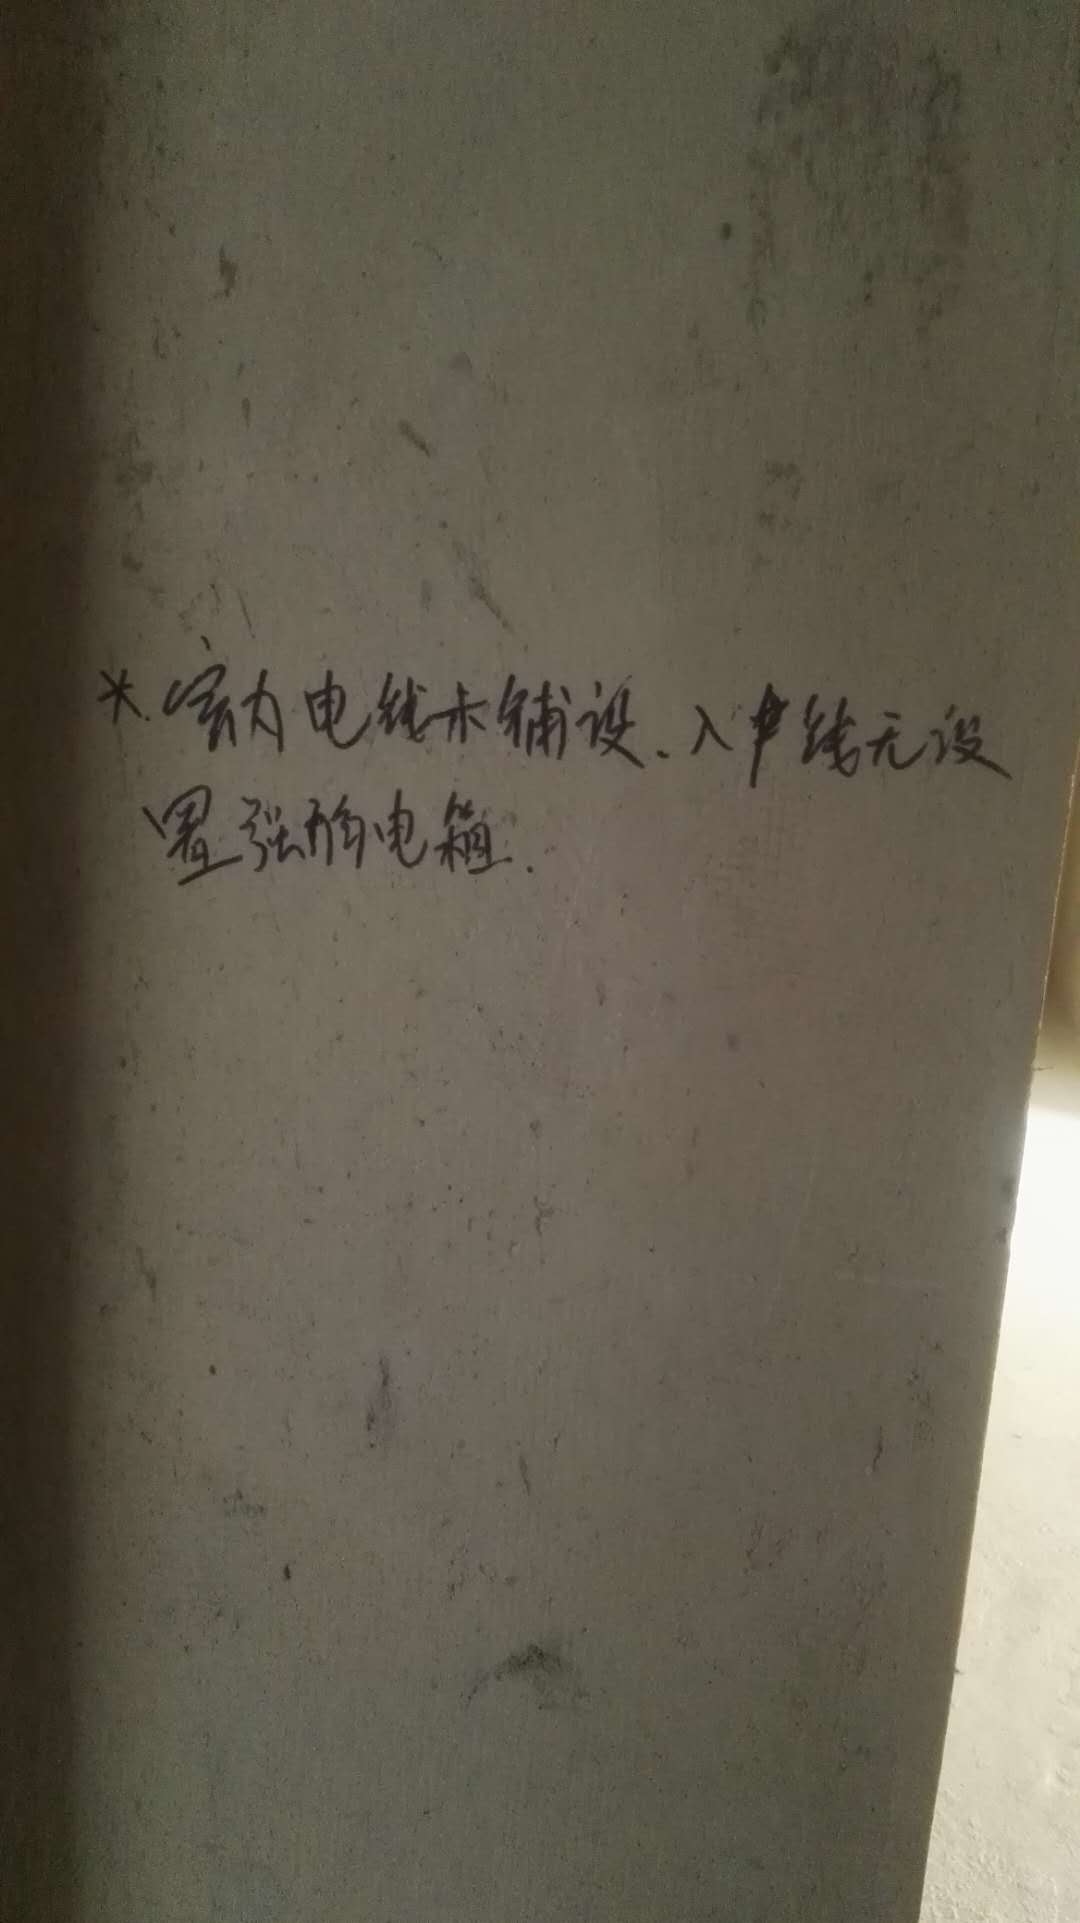 *.室内电线未铺设.入户线无设
置强弱电箱.